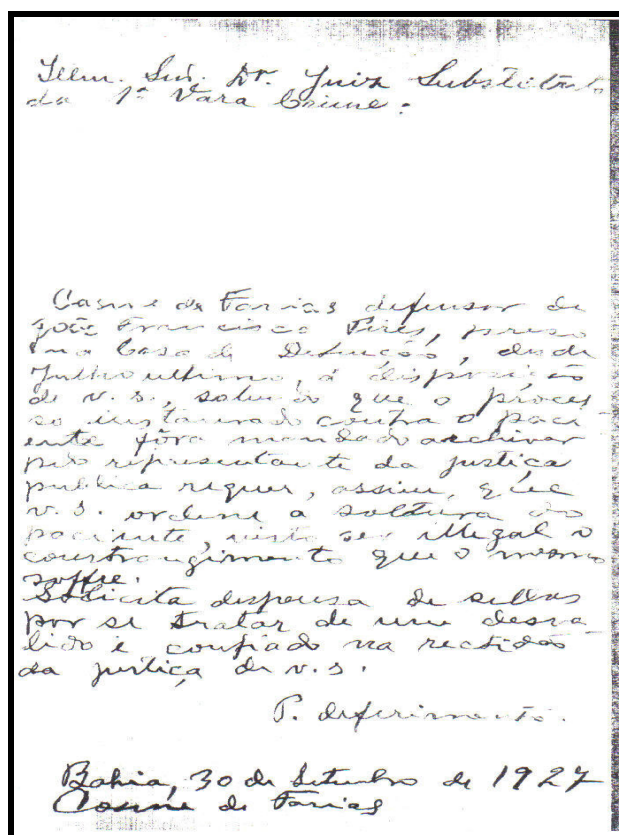 Illm. Snr. Dr. Juiz Substituto
da 1ª Vara Crime.
Cosme de Farias defensor de
João Francisco Pires, preso
na Casa de Detenção, desde
Julho ultimo, á disposição
de v.s., sabendo que o proces-
so instaurado contra o paci-
ente fôra mandado archivar
pelo representante da justiça
publica requer, assim, que
v.s. ordene a soltura do
paciente, visto ser illegal o
constrangimento que o mesmo
soffre.
Solicita dispensa de sellos
por se tratar de um desva-
lido e confiado na rectidão
da justiça de v.s.
P. deferimento.
Bahia, 30 de Setembro de 1927
Cosme de Farias